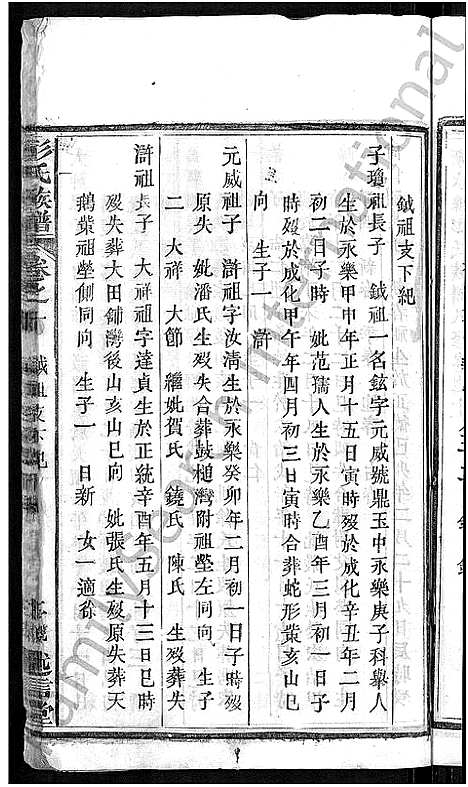 鉞祖支下紀
子瓊祖長子 鉞祖一名鉉字元威號鼎玉中永樂庚子科舉人
生於永樂甲申年正月十五日寅時歿於成化辛丑年二月
初二日子時 妣范孺人生於永樂乙酉年三月初一日子
時歿於成化甲午年四月初三日寅時合葬蛇形葉亥山巳
向 生子一 滸
元威祖子 滸祖字汝清生於永樂癸卯年二月初一日子時歿
原失 妣潘氏生歿失合葬鼓槌灣附祖塋左同向 生子
二 大祥 大節 繼妣賀氏 鐃氏 陳氏 生歿葬失
滸祖長子 大祥祖字達貞生於正統辛酉年五月十三日巳時
歿失葬大田舖灣後山亥山巳向 妣張氏生歿原失葬天
鵝葉祖塋側同向 生子一 日新 女一適徐
彭氏族譜
卷之
鉞祖支下紀
堂
Familysearch International